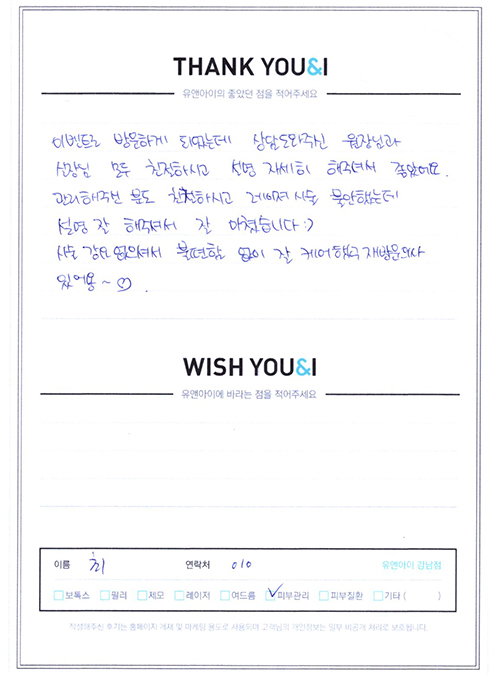 THANK YOU&I
유앤아이의 좋았던 점을 적어주세요
이벤트로 방문하게 되었는데 상담도와주신 원장님과
실장님 모두 친절하시고 설명 자세히 해주셔서 좋았어요.
관리해주신 분도 친절하시고 레이져시술 불안했는데
설명 잘 해주셔서 잘 마쳤습니다:)
시술 강요 없으셔서 불편함 없이 잘 케어했구 재방문의사
있어용~
WISH YOU&I
유앤아이에 바라는 점을 적어주세요
이름 최 연락처 010 유앤아이 강남점
보톡스 필러 제모 레이저 여드름 피부관리 피부질환 기타 ( )
작성해주신 후기는 홈페이지 게재 및 마케팅 용도로 사용되며 고객님의 개인정보는 일부 비공개 처리로 보호됩니다.